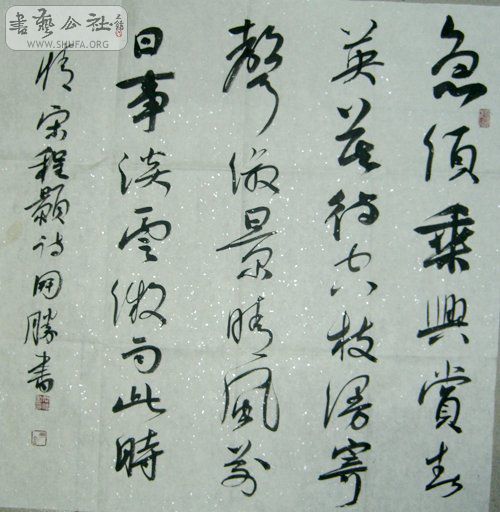 書藝公社
WWW.SHUFA.ORG
急須乘興賞春
英莫待空枝謾寄
聲淑景晴風前
日事淡雲微雨此時
情 宋程顥詩 勝書